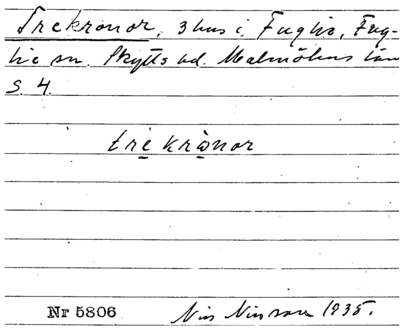 Trekronor, 3 hus i Fuglie, Fug-
lie sn. Skytts hd. Malmöhus län
S. 4.
trekrònor
Nr 5806 Nils Nilsson 1935.